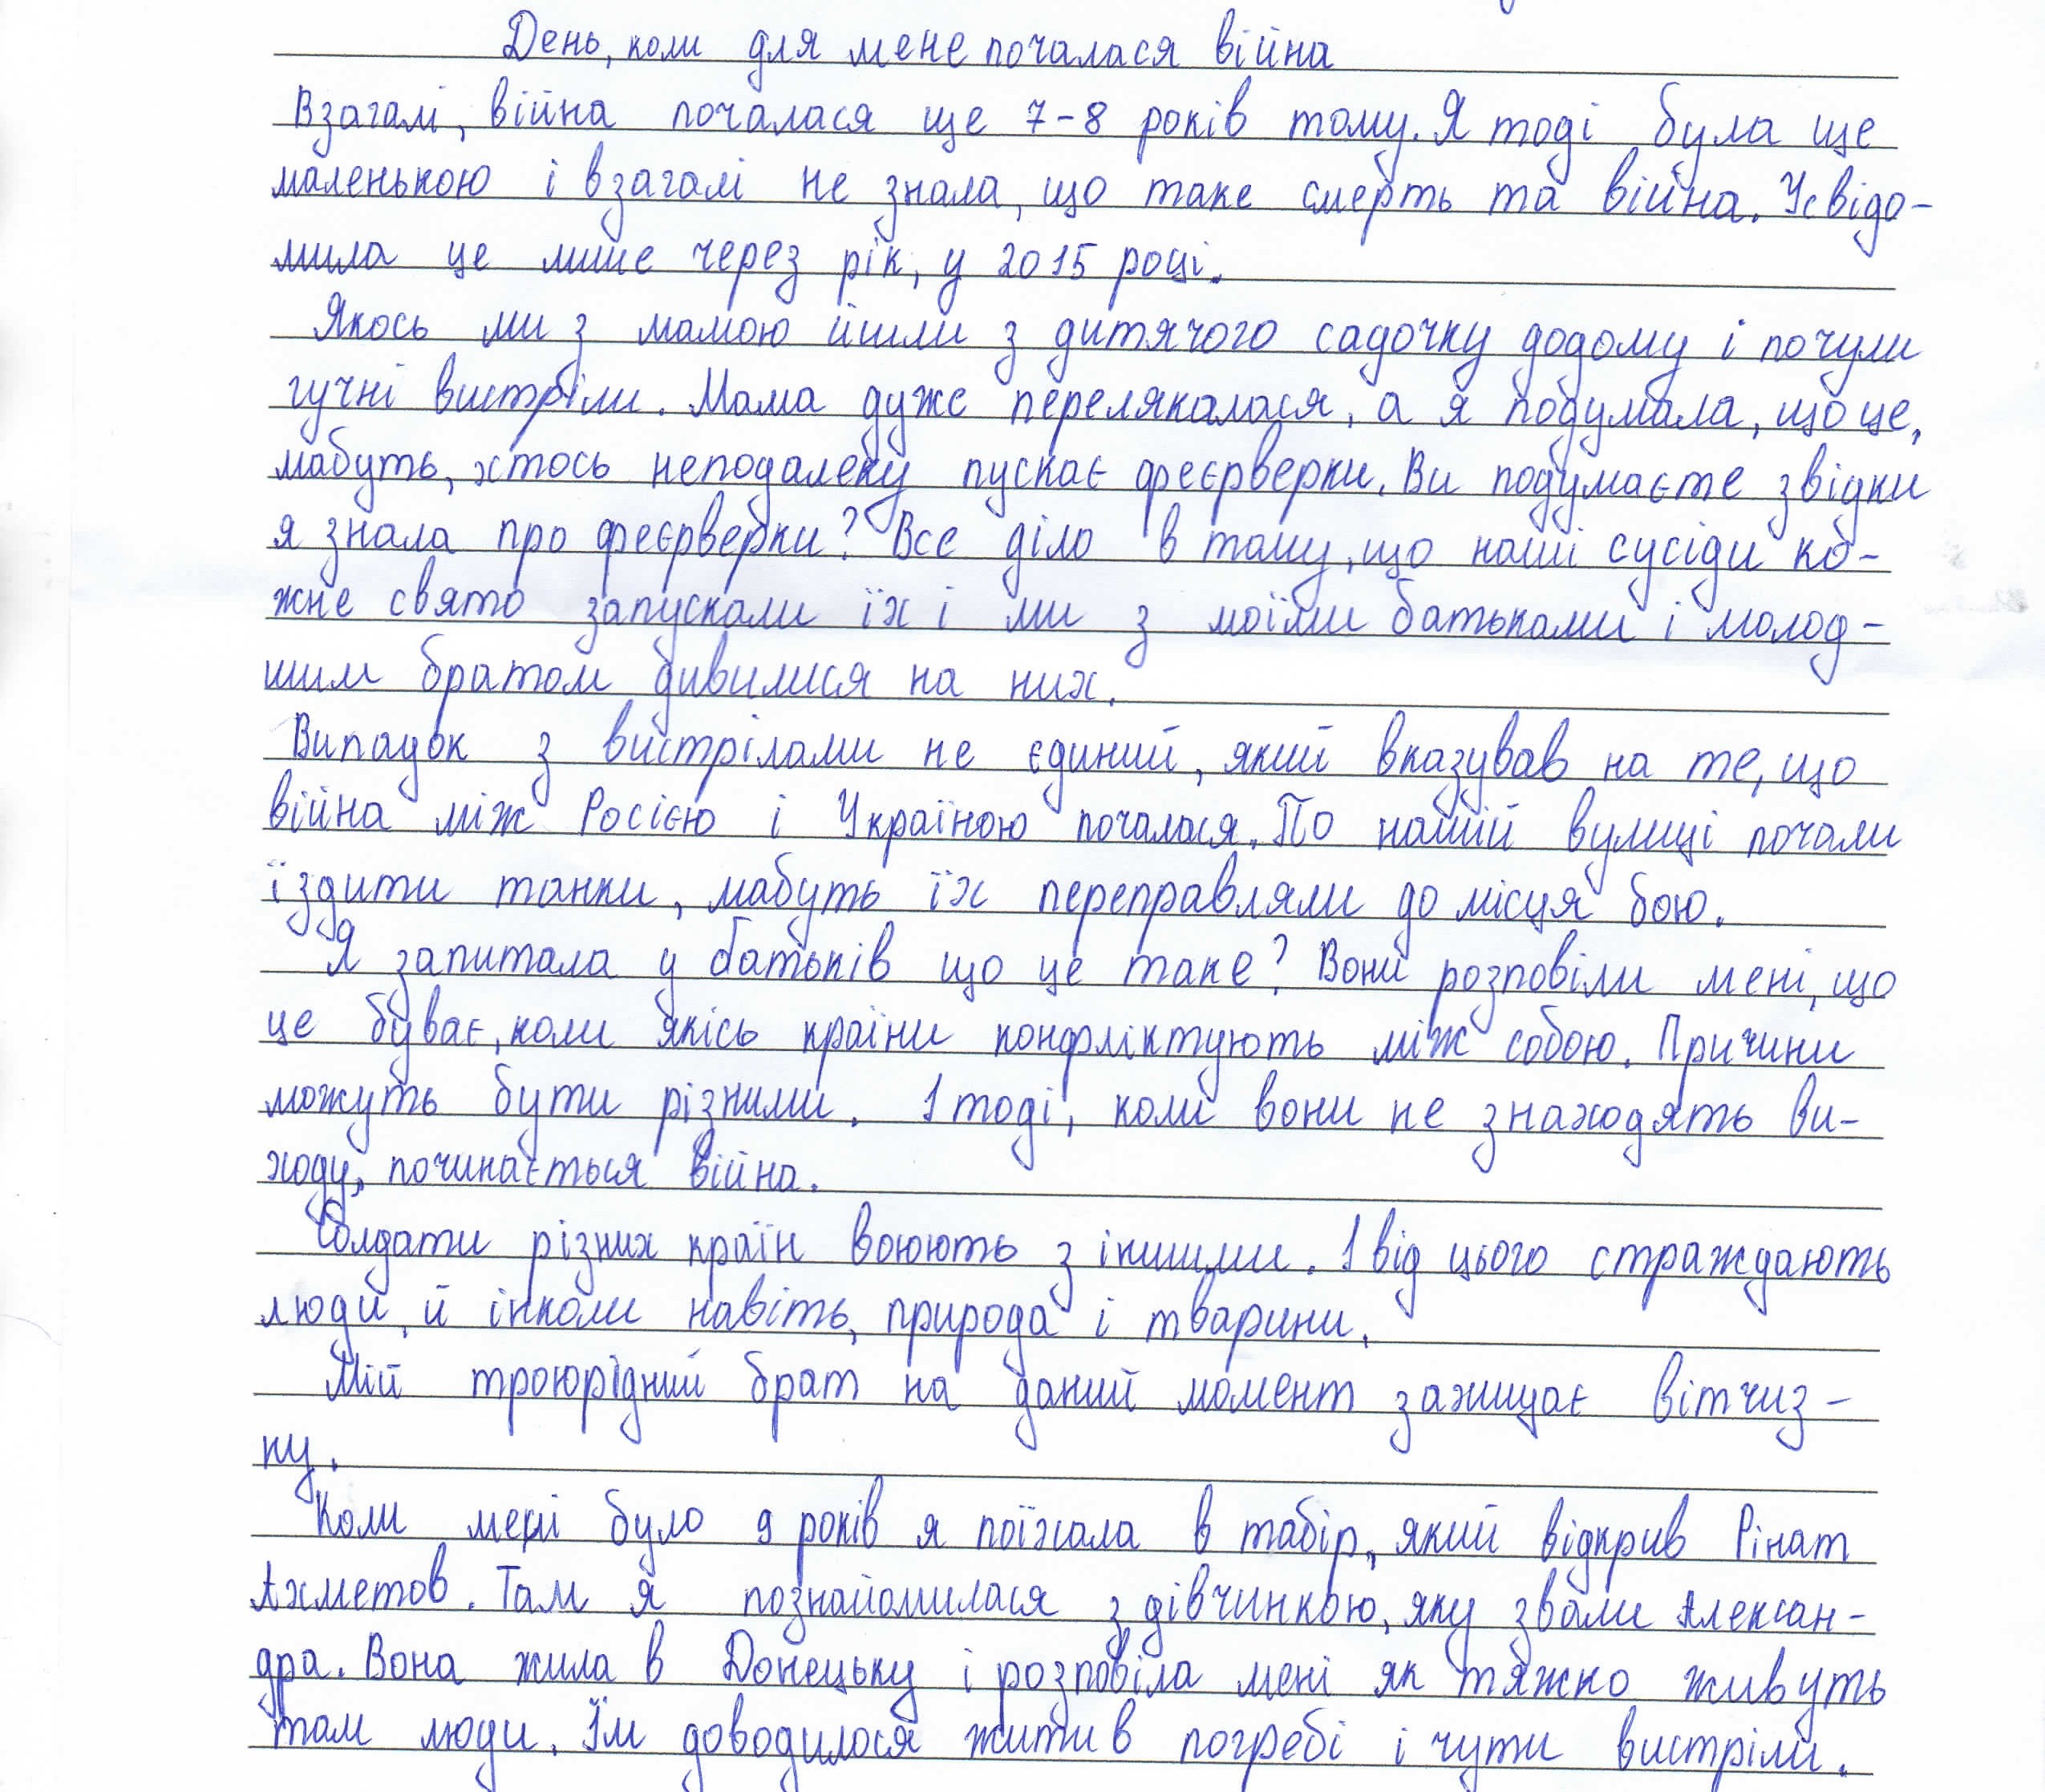 День, коли для мене почалася війна
Взагалі, війна почалася ще 7-8 років тому. Я тоді була ще
маленькою і взагалі не знала, що таке смерть та війна. Усвідо-
мила це лише через рік, у 2015 році.
Якось ми з мамою йшли з дитячого садочку додому і почули
гучні вистріли. Мама дуже перелякалася, а я подумала, що це,
мабуть, хтось неподалеку пускає феєрверки. Ви подумаєте звідки
я знала про феєрверки? Все діло в тому, що наші сусіди ко-
жне свято запускали їх і ми з моїми батьками і молод-
шим братом дивилися на них.
Випадок з вистрілами не єдиний, який вказував на те, що
війна між Росією і Україною почалася. По нашій вулиці почали
їздити танки, мабуть їх переправляли до місця бою.
Я запитала у батьків що це таке? Вони розповіли мені, що
це буває, коли якісь країни конфліктують між собою. Причини
можуть бути різними. І тоді, коли вони не знаходять ви-
ходу, починається війна.
Солдати різних країн воюють з іншими. І від цього страждають
люди, й інколи навіть, природа і тварини.
Мій троюрідний брат на даний момент захищає вітчиз-
ну.
Коли мені було 9 років я поїхала в табір, який відкрив Рінат
Ахметов. Там я познайомилася з дівчинкою, яку звали Алексан-
дра. Вона жила в Донецьку і розповіла мені як тяжко живуть
там люди. Їм доводилося жити в погребі і чути вистріли.